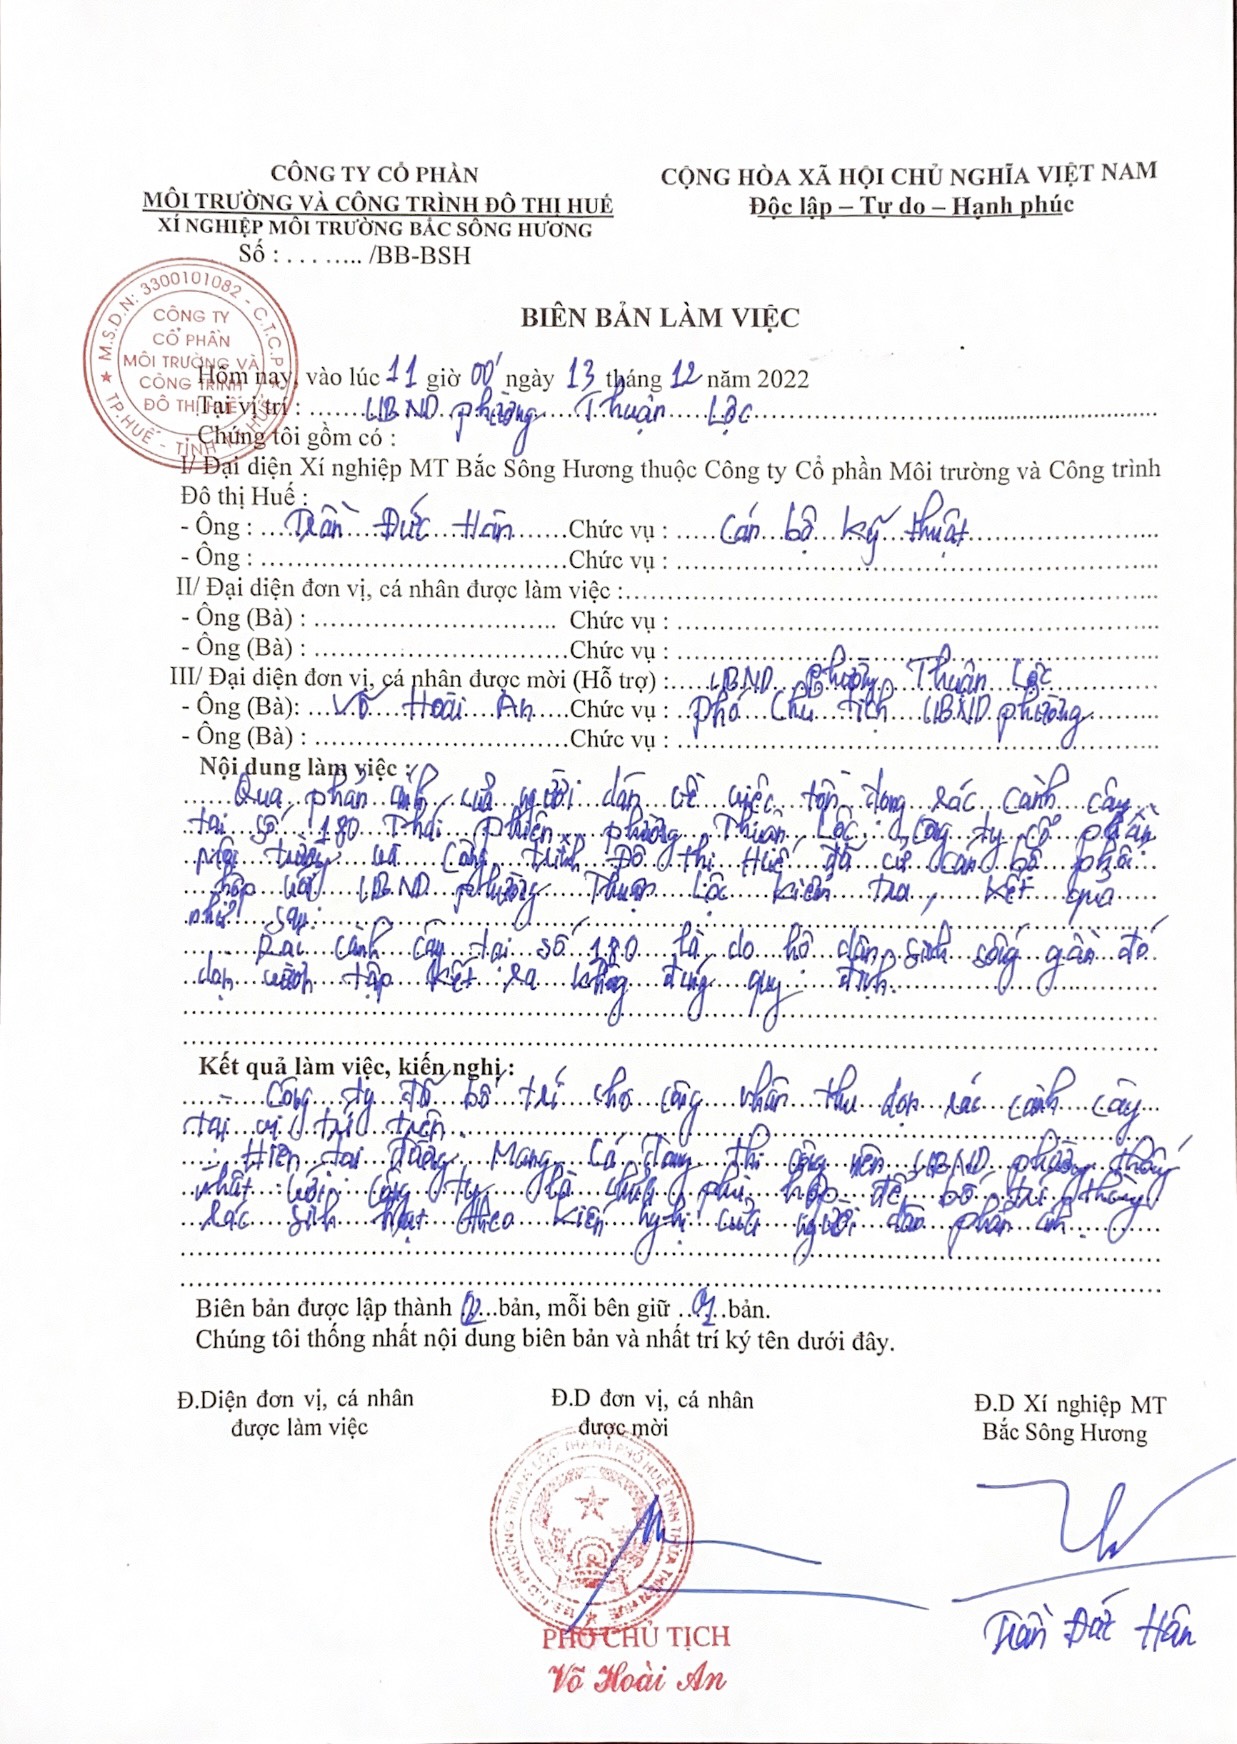 CÔNG TY CỔ PHẦN
MÔI TRƯỜNG VÀ CÔNG TRÌNH ĐÔ THỊ HUẾ
XÍ NGHIỆP MÔI TRƯỜNG BẮC SÔNG HƯƠNG
Số : . . . ..... /BB-BSH
CỘNG HÒA XÃ HỘI CHỦ NGHĨA VIỆT NAM
Độc lập – Tự do – Hạnh phúc
M.S.D.N: 3300101082 - C.T.C.P
CÔNG TY
CỔ PHẦN
MÔI TRƯỜNG VÀ
CÔNG TRÌNH
ĐÔ THỊ HUẾ
TP.HUẾ - TỈNH
BIÊN BẢN LÀM VIỆC
Hôm nay, vào lúc 11 giờ 00' ngày 13 tháng 12 năm 2022
Tại vị trí : UBND phường Thuận Lộc
Chúng tôi gồm có :
I/ Đại diện Xí nghiệp MT Bắc Sông Hương thuộc Công ty Cổ phần Môi trường và Công trình
Đô thị Huế :
- Ông : Trần Đức Hân Chức vụ : Cán bộ kỹ thuật
- Ông : Chức vụ :
II/ Đại diện đơn vị, cá nhân được làm việc :
- Ông (Bà) : Chức vụ :
- Ông (Bà) : Chức vụ :
III/ Đại diện đơn vị, cá nhân được mời (Hỗ trợ) : UBND phường Thuận Lộc
- Ông (Bà): Võ Hoài An Chức vụ : Phó Chủ tịch UBND phường
- Ông (Bà) : Chức vụ :
Nội dung làm việc :
Qua phản ánh của người dân về việc tồn đọng rác cành cây
tại số 180 Thái Phiên, phường Thuận Lộc. Công ty cổ phần
Môi trường và Công trình Đô thị Huế đã cử cán bộ phối
hợp với UBND phường Thuận Lộc kiểm tra, kết quả
như sau:
Rác cành cây tại số 180 là do hộ dân sinh sống gần đó
dọn vườn tập kết ra không đúng quy định.
Kết quả làm việc, kiến nghị :
Công ty đã bố trí cho công nhân thu dọn rác cành cây
tại vị trí trên.
Hiện tại đường Mang Cá đang thi công nên UBND phường thống
nhất với công ty phù hợp để bố trí thùng
rác sinh hoạt theo kiến nghị của người dân phản ánh.
Biên bản được lập thành 02 bản, mỗi bên giữ 01 bản.
Chúng tôi thống nhất nội dung biên bản và nhất trí ký tên dưới đây.
Đ.Diện đơn vị, cá nhân
được làm việc
Đ.D đơn vị, cá nhân
được mời
Đ.D Xí nghiệp MT
Bắc Sông Hương
PHÓ CHỦ TỊCH
Võ Hoài An
Trần Đức Hân